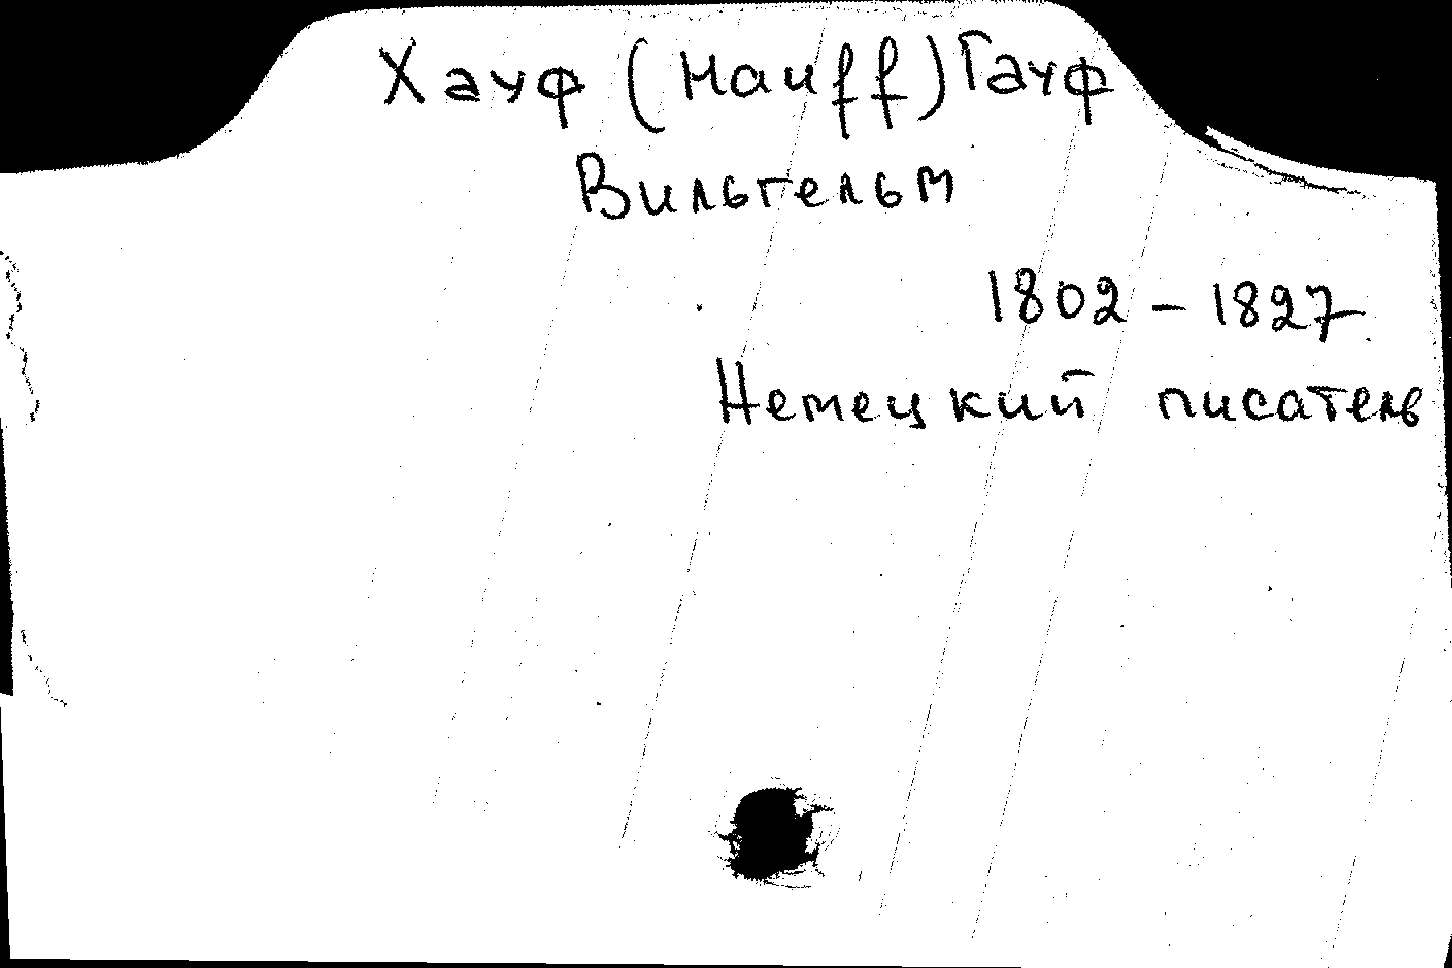 Хауф (Hauff) Гауф
Вильгельм
1802 – 1827
Немецкий писатель